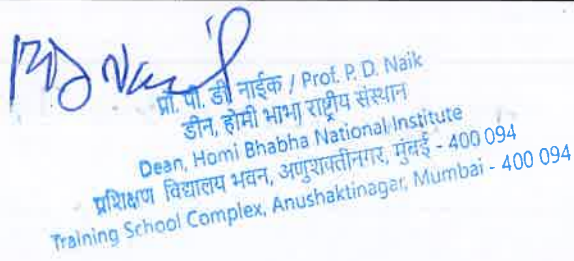 PD Naik
प्रो. पी. डी नाईक / Prof. P. D. Naik
डीन, होमी भाभा राष्ट्रीय संस्थान
Dean, Homi Bhabha National Institute
प्रशिक्षण विद्यालय भवन, अणुशक्तीनगर, मुंबई - 400 094
Training School Complex, Anushaktinagar, Mumbai - 400 094